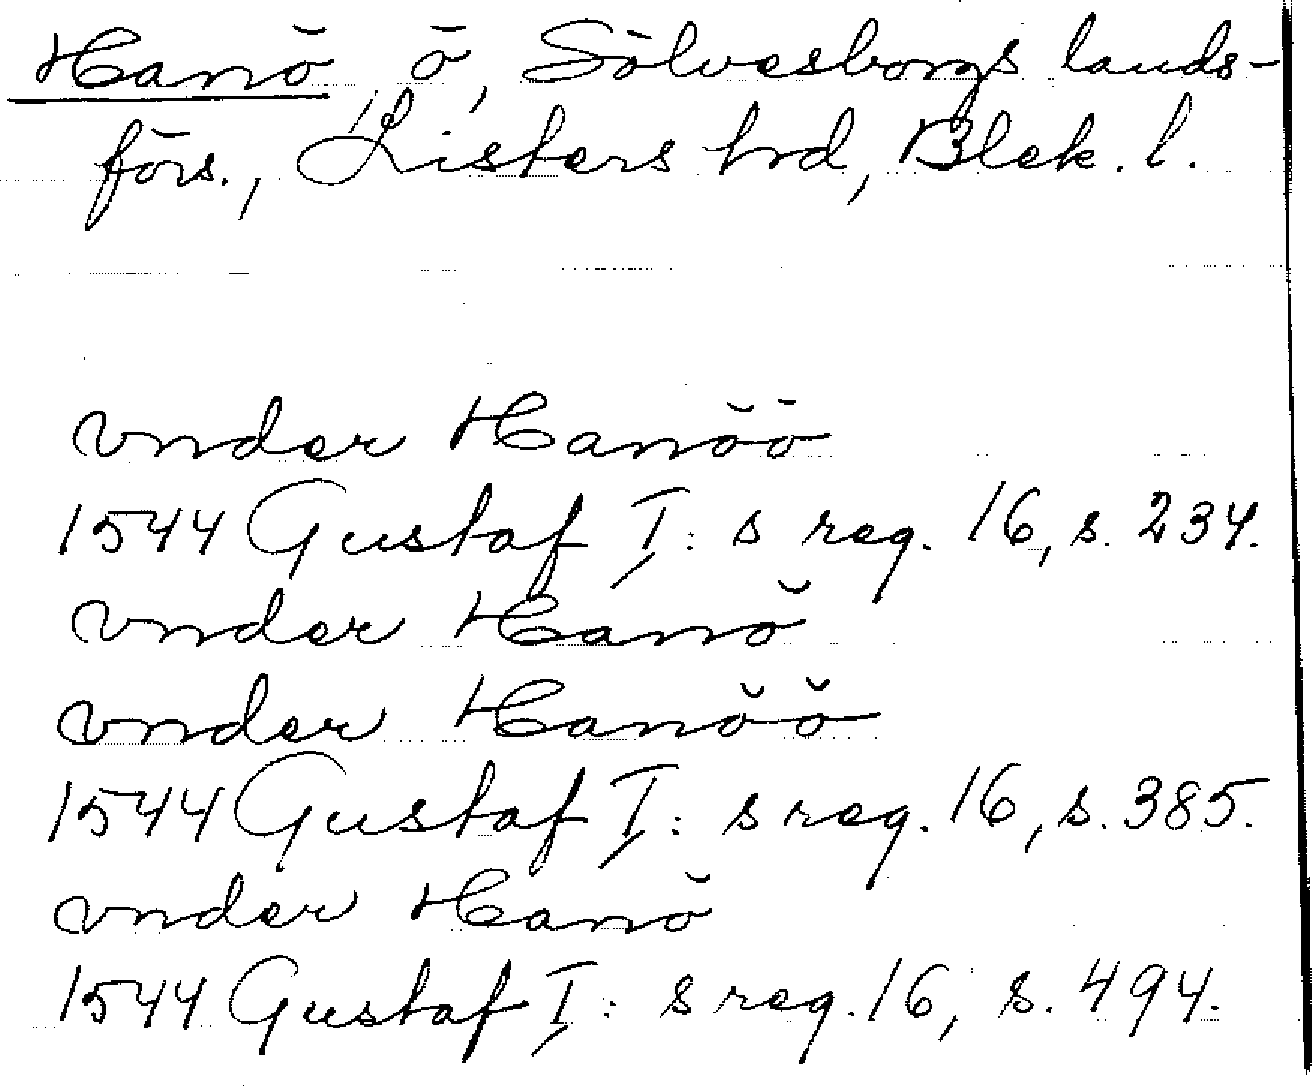 Hanö, ö, Sölvesborgs lands-
förs., Listers hrd, Blek. l.
vnder Hanöö
1544 Gustaf I:s reg. 16, s. 234.
vnder Hanö
vnder Hanöö
1544 Gustaf I:s reg. 16, s. 385.
vnder Hanö
1544 Gustaf I:s reg. 16, s. 494.